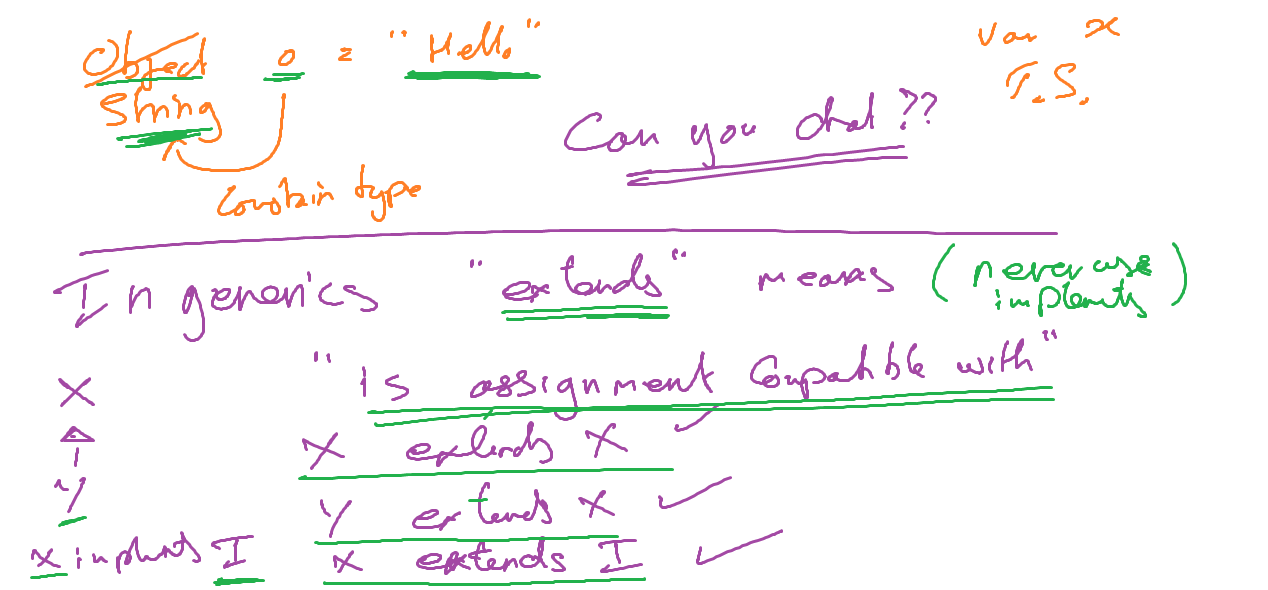 Object o = "Hello"
String
Constrain type
var x
T.S.
Can you chat??
In generics "extends" means (never use implements)
"is assignment compatible with"
X
Y
X extends X ✓
Y extends X ✓
X implements I
X extends I ✓